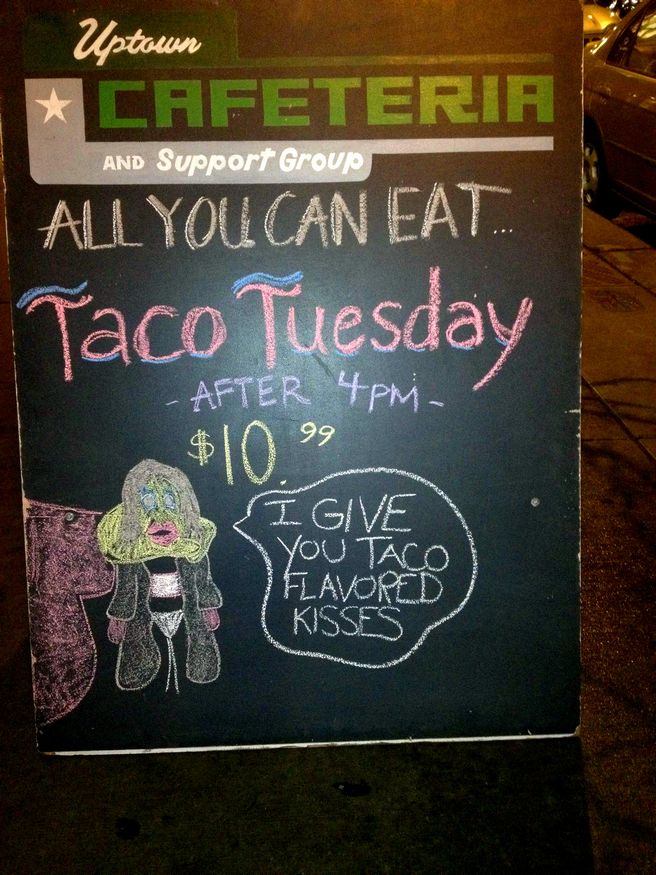 Uptown
CAFETERIA
AND Support Group
ALL YOU CAN EAT...
Taco Tuesday
- AFTER 4PM -
$10.99
I GIVE
YOU TACO
FLAVORED
KISSES